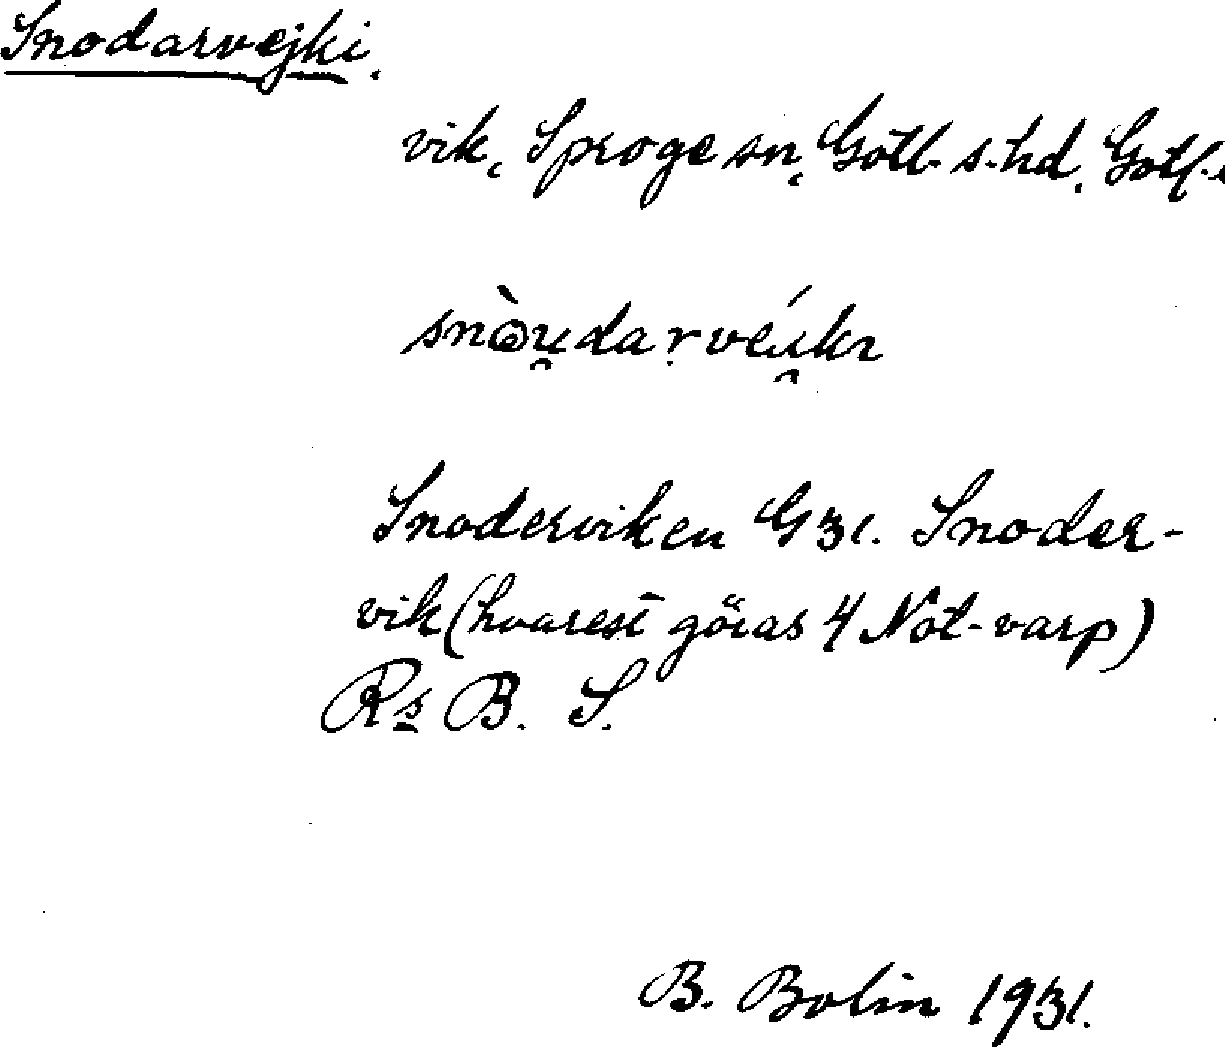 Snodarvejki.
vik, Sproge sn, Gotl. s. hd. Gotl.
Snoderviken G 31. Snoder-
vik (hvarest göras 4 Not-varp)
Rs B. S.
B. Bolin 1931.